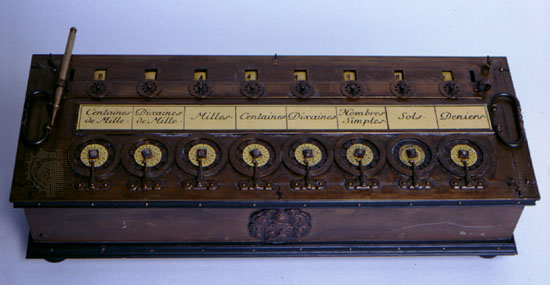 Centaines de Mille. Dixaines de Mille. Milles. Centaines Dixaines Nombres Simples. Sols. Deniers.